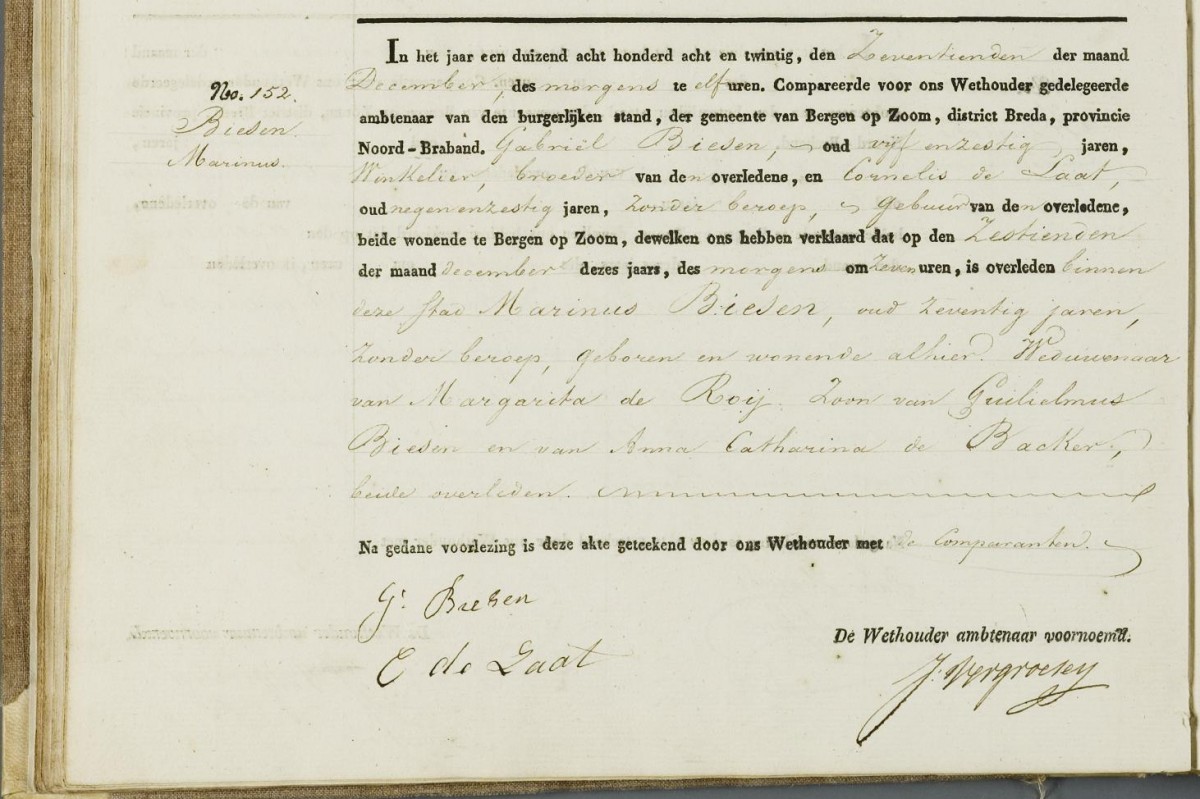 No. 152.
Biesen
Marinus.
In het jaar een duizend acht honderd acht en twintig, den Zeventienden der maand
December, des morgens te elf uren. Compareerde voor ons Wethouder gedelegeerde
ambtenaar van den burgerlijken stand, der gemeente van Bergen op Zoom, district Breda, provincie
Noord-Braband. Gabriël Biesen, oud vijf enzestig jaren,
Winkelier, broeder van den overledene, en Cornelis de Laat,
oud negen enzestig jaren, Zonder beroep, Gebuur van den overledene,
beide wonende te Bergen op Zoom, dewelken ons hebben verklaard dat op den Zestienden
der maand december dezes jaars, des morgens om Zeven uren, is overleden binnen
deze Stad Marinus Biesen, oud Zeventig jaren,
Zonder beroep, geboren en wonende alhier. Weduwenaar
van Margarita de Roij. Zoon van Guilielmus
Biesen en van Anna Catharina de Backer,
beide overleden.
Na gedane voorlezing is deze akte geteekend door ons Wethouder met de Comparanten.
G. Biesen
C de Laat
De Wethouder ambtenaar voornoemd.